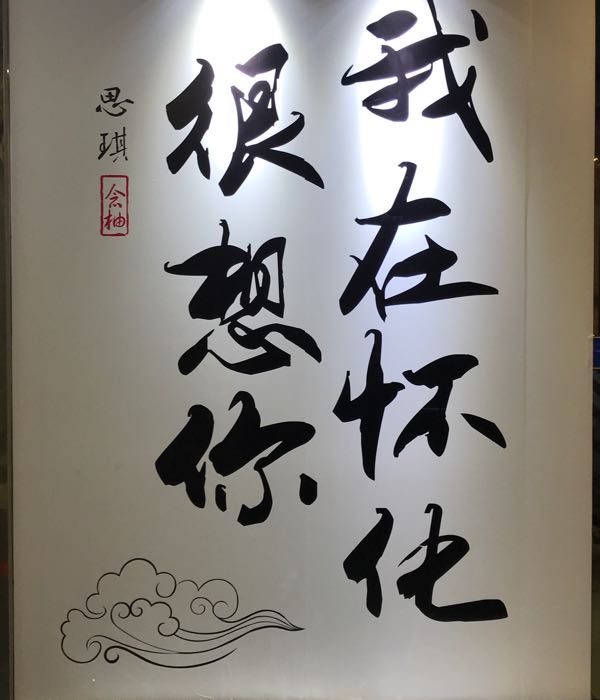 我在怀化
很想你
思琪
念柚